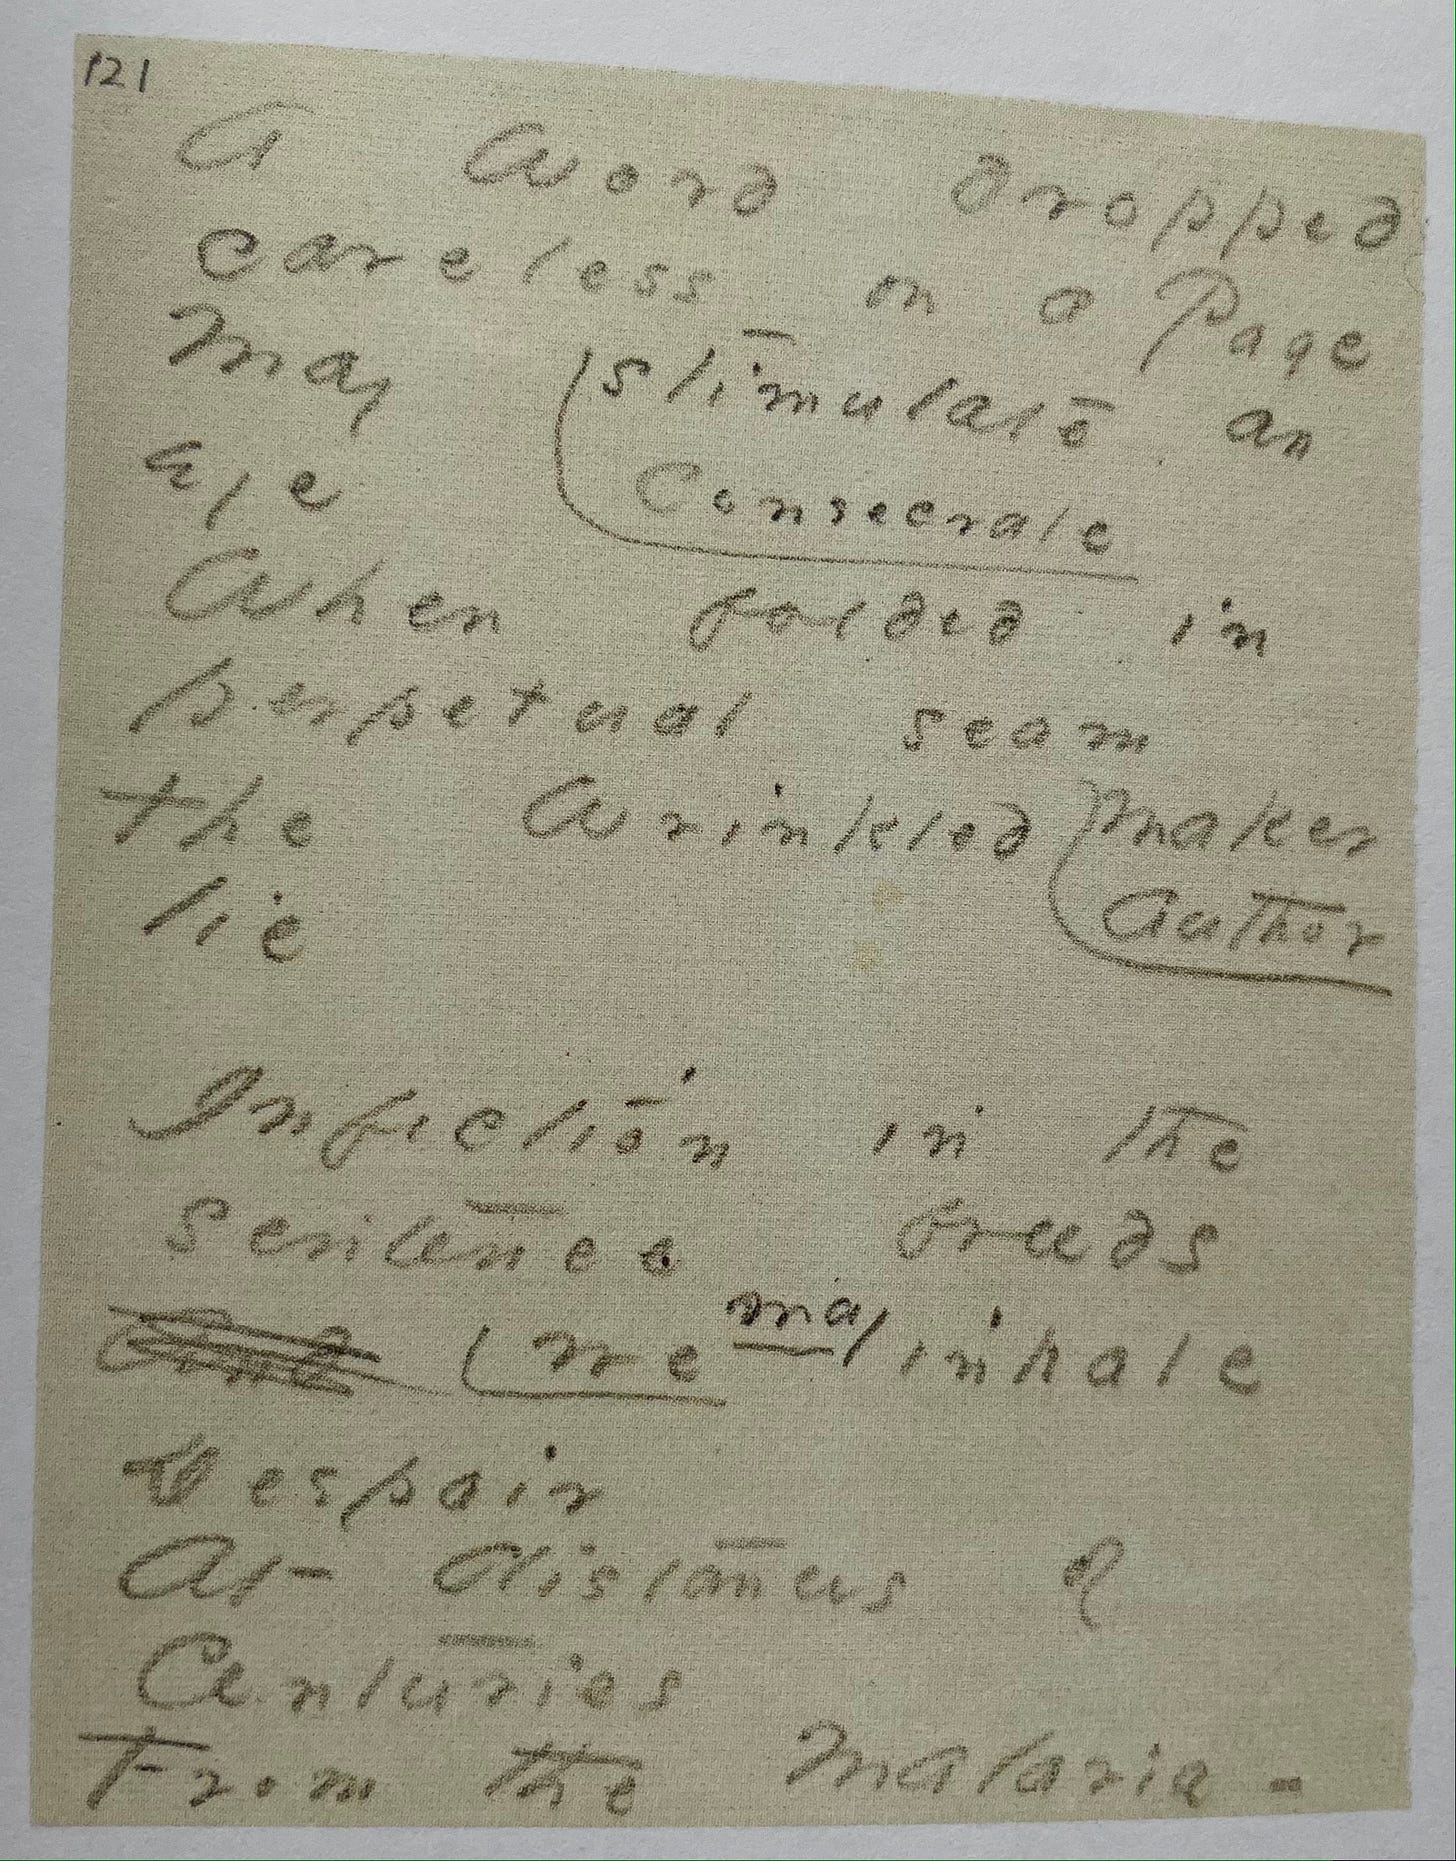 121
A Word dropped
careless on a Page
May stimulate an
Consecrate
eye
When folded in
perpetual seam
The Wrinkled Maker
Author
lie
Infection in the
sentence breeds
we may inhale
Despair
At distances of
Centuries
From the Malaria -